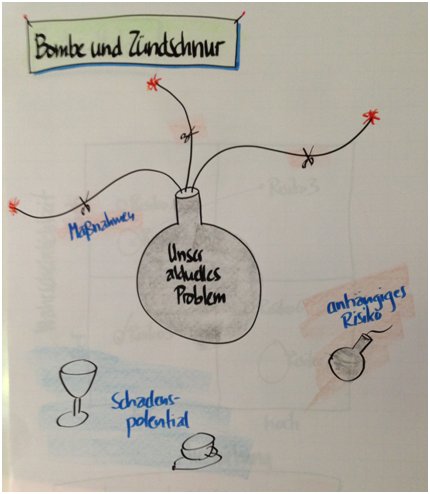 Bombe und Zündschnur
Maßnahmen
Unser
aktuelles
Problem
anhängiges
Risiko
Schadens-
potential